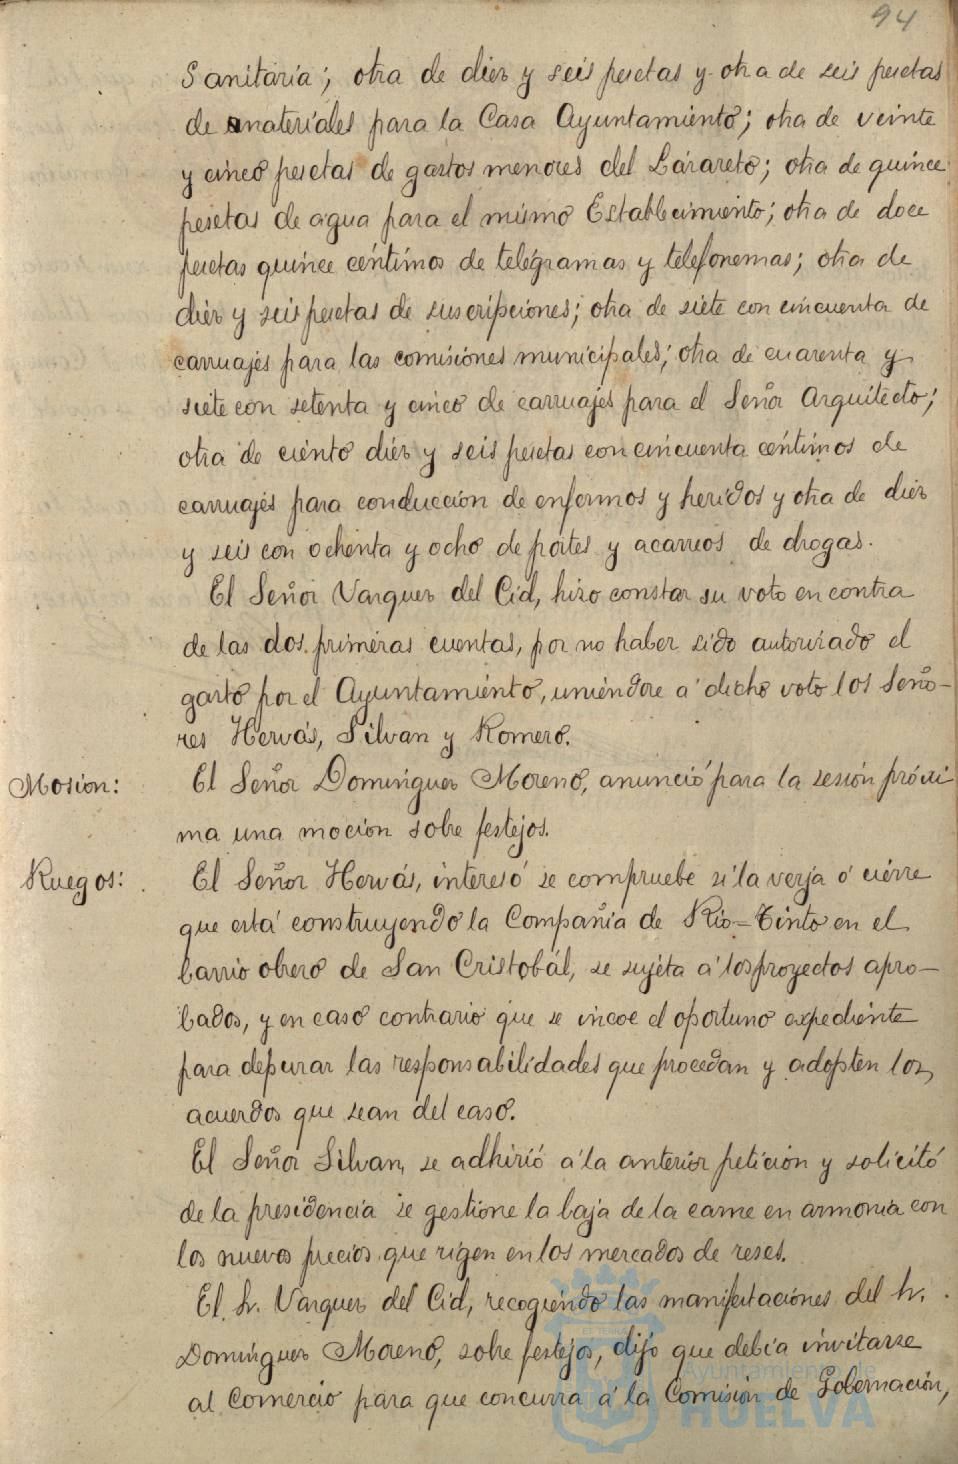 94
Sanitaria; otra de diez y seis pesetas y otra de seis pesetas
de materiales para la Casa Ayuntamiento; otra de veinte
y cinco pesetas de gastos menores del Lázareto; otra de quince
pesetas de agua para el mismo Establecimiento; otra de doce
pesetas quince céntimos de telégramas y telefonemas; otra de
diez y seis pesetas de suscripciones; otra de siete con cincuenta de
carruajes para las comisiones municipales; otra de cuarenta y
siete con setenta y cinco de carruajes para el Señor Arquitecto;
otra de ciento diez y seis pesetas con cincuenta céntimos de
carruajes para conducción de enfermos y heridos y otra de diez
y seis con ochenta y ocho de portes y acarreos de drogas.
El Señor Vazquez del Cid, hizo constar su voto en contra
de las dos primeras cuentas, por no haber sido autorizado el
gasto por el Ayuntamiento, uniéndose a dicho voto los Seño-
res Hervás, Silvan y Romero.
Mosion: El Señor Dominguez Moreno, anunció para la sesión próxi
ma una moción sobre festejos.
Ruegos: El Señor Hervás, interesó se compruebe si la verja ó cierre
que está construyendo la Compañia de Rio-Tinto en el
barrio obrero de San Cristobál, se sujeta á los proyectos apro-
bados, y en caso contrario que se incoe el oportuno expediente
para depurar las responsabilidades que procedan y adopten los
acuerdos que sean del caso.
El Señor Silvan, se adhirió á la anterior petición y solicitó
de la presidencia se gestione la baja de la carne en armonia con
los nuevos precios que rigen en los mercados de reses.
El Sr. Vazquez del Cid, recogiendo las manifestaciones del Sr.
Dominguez Moreno, sobre festejos, dijo que debía invitarse
al Comercio para que concurra á la Comisión de Gobernación,
Ayuntamiento de
HUELVA